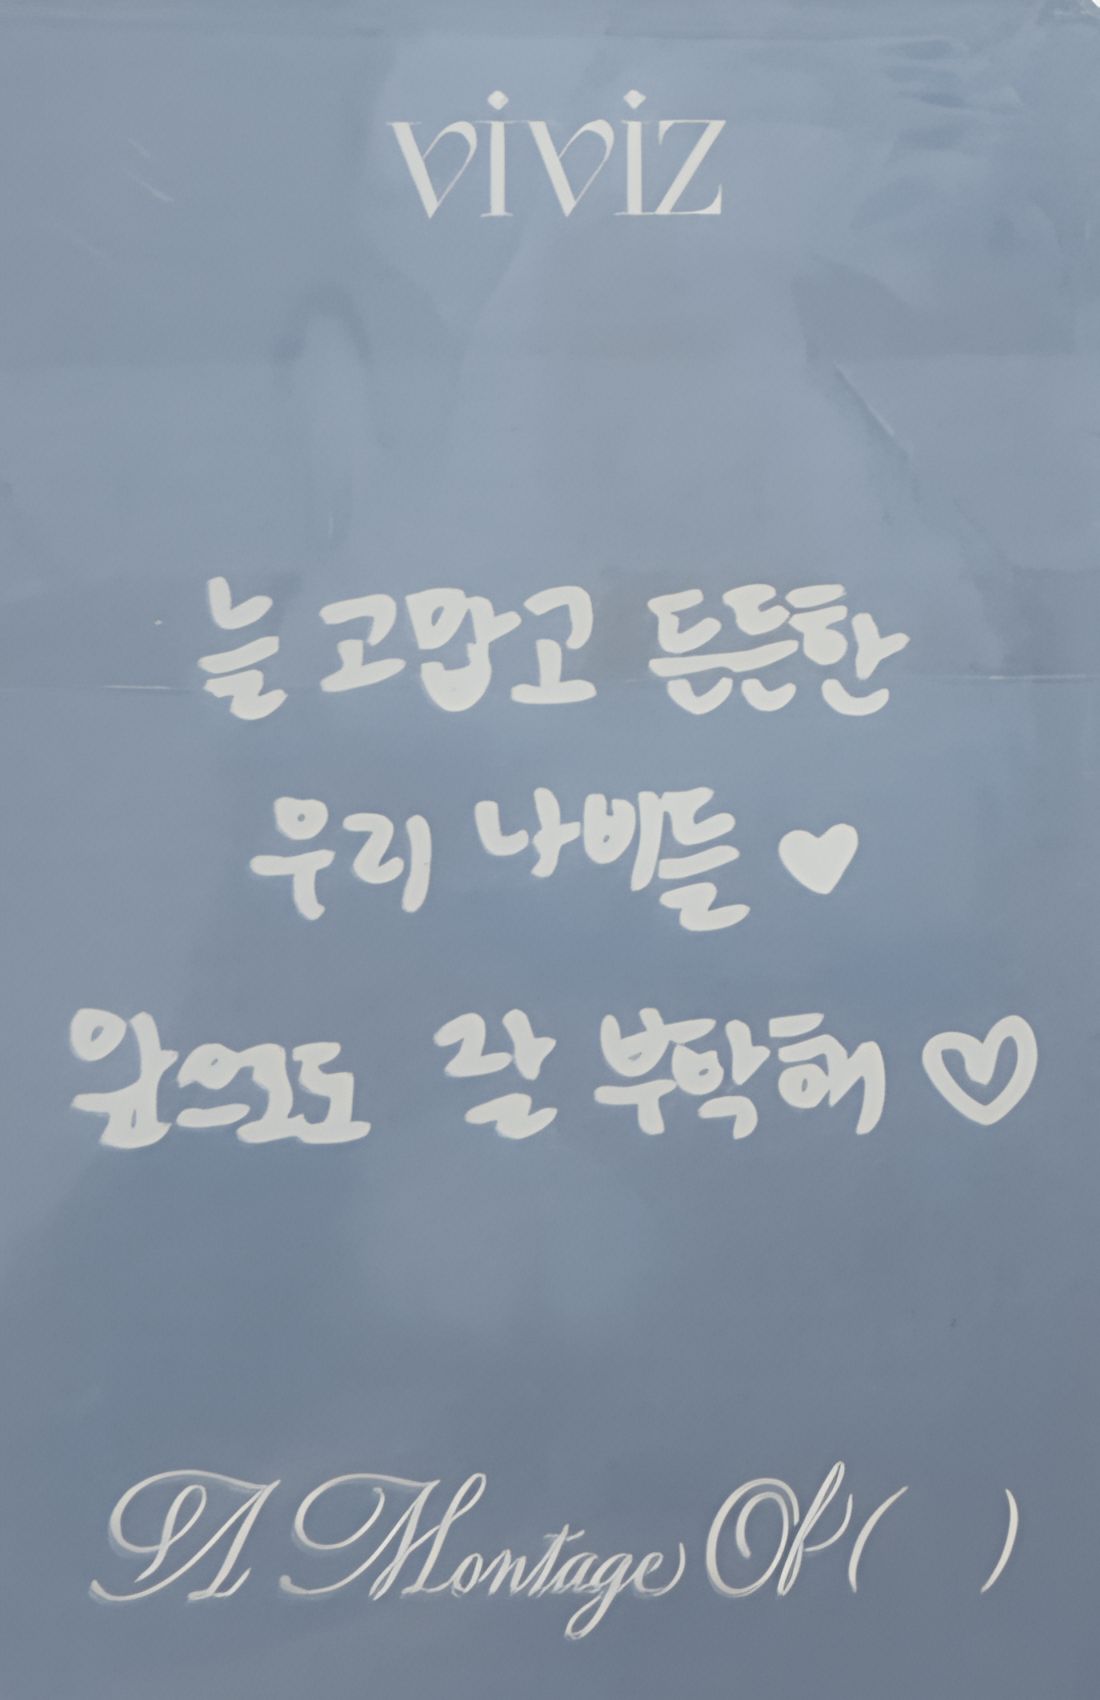 VIVIZ
늘 고맙고 든든한
우리 나비들 ♥
앞으로도 잘 부탁해 ♡
A Montage Of ( )